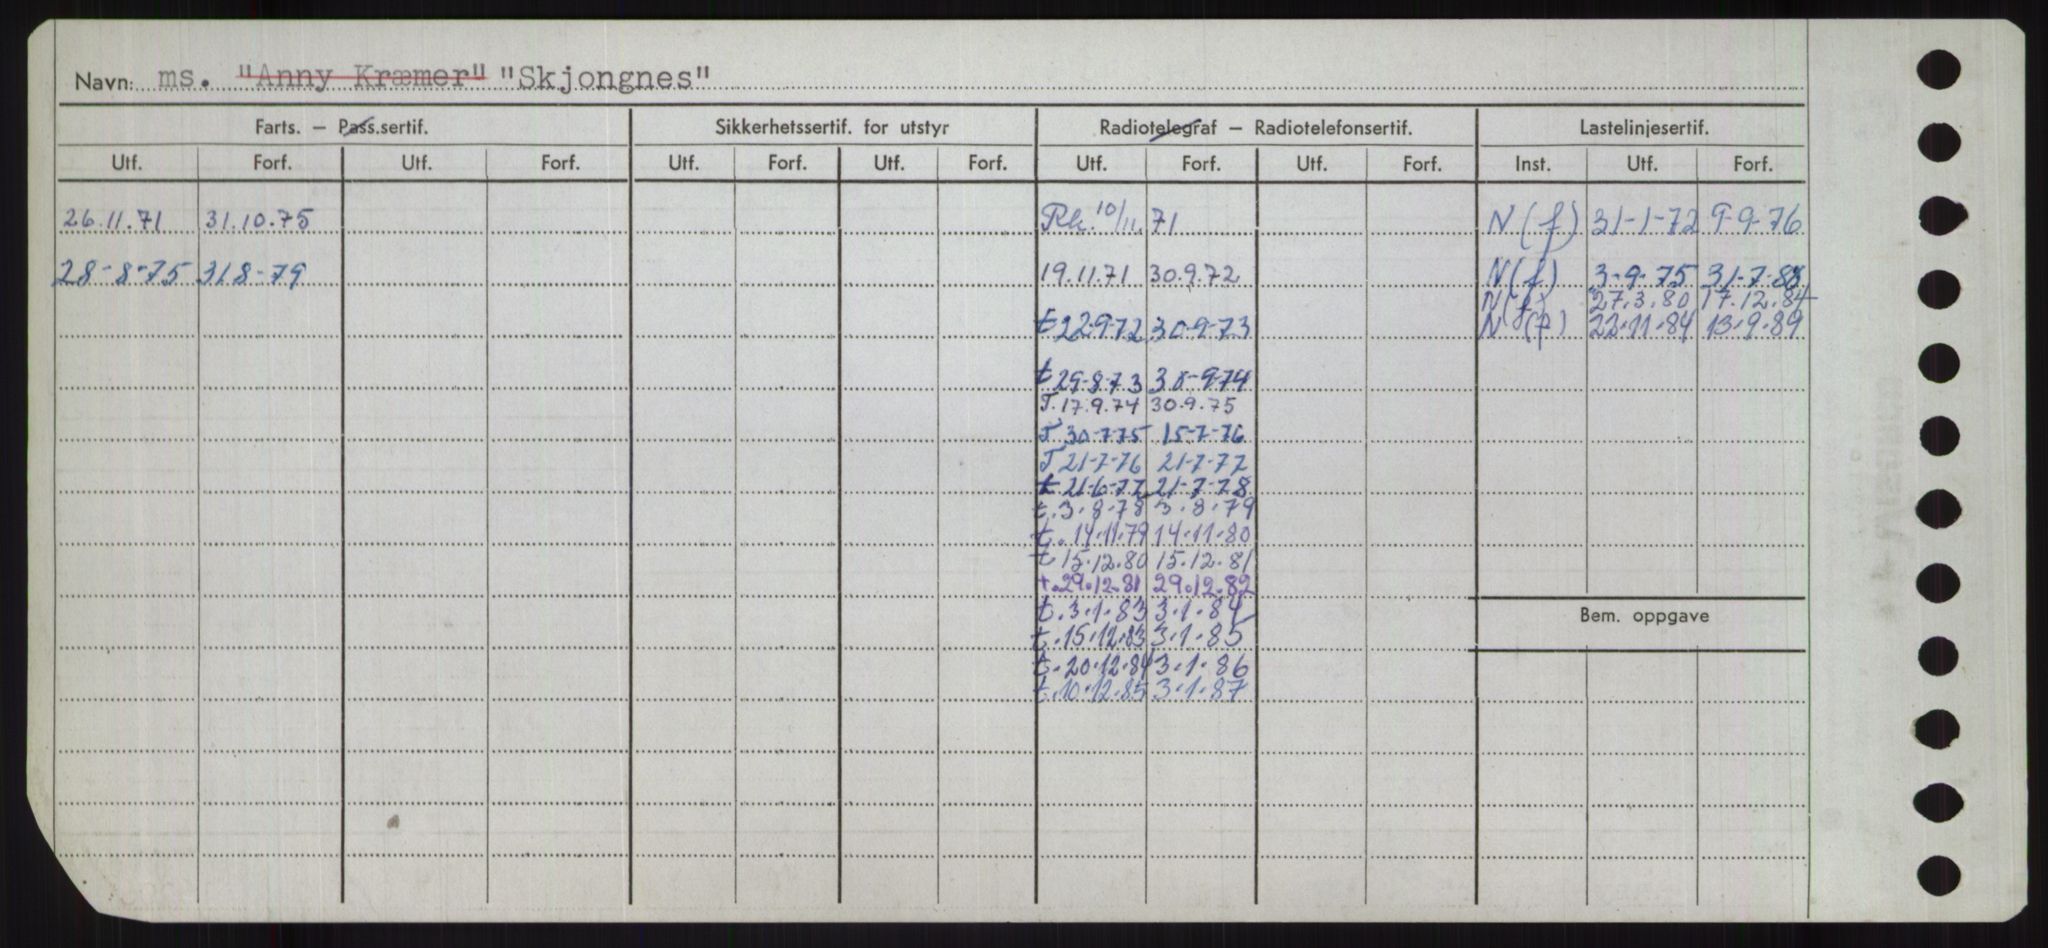 Navn: ms. "Anny Kræmer" "Skjongnes"
Farts. – Pass.sertif. Sikkerhetssertif. for utstyr Radiotelegraf – Radiotelefonsertif. Lastelinjesertif.
Utf. Forf. Utf. Forf. Utf. Forf. Utf. Forf. Utf. Forf. Utf. Forf. Inst. Utf. Forf.
26.11.71 31.10.75 Rk. 10/11 71 N(f) 31-1-72 9-9-76
28-8-75 318-79 19.11.71 30.9.72 N(f) 3-9-75 31-7-83
N(f) 27.3.80 17.12.84
t 22-9-72 30-9-73 N(f) 22.11.84 13.9.89
t 29-8-73 30-9-74
T. 17.9.74 30.9.75
T 30-775 15-7-76
T 21-7-76 21-7-77
t 21-6-77 21-7-78
t. 3.8.78 3.8.79
t. 14.11.79 14.11.80
t 15.12.80 15.12.81
t. 29.12.81 29.12.82
t. 3.1.83 3.1.84
t. 15.12.83 3.1.85
Bem. oppgave
t. 20.12.84 3.1.86
t. 10.12.85 3.1.87